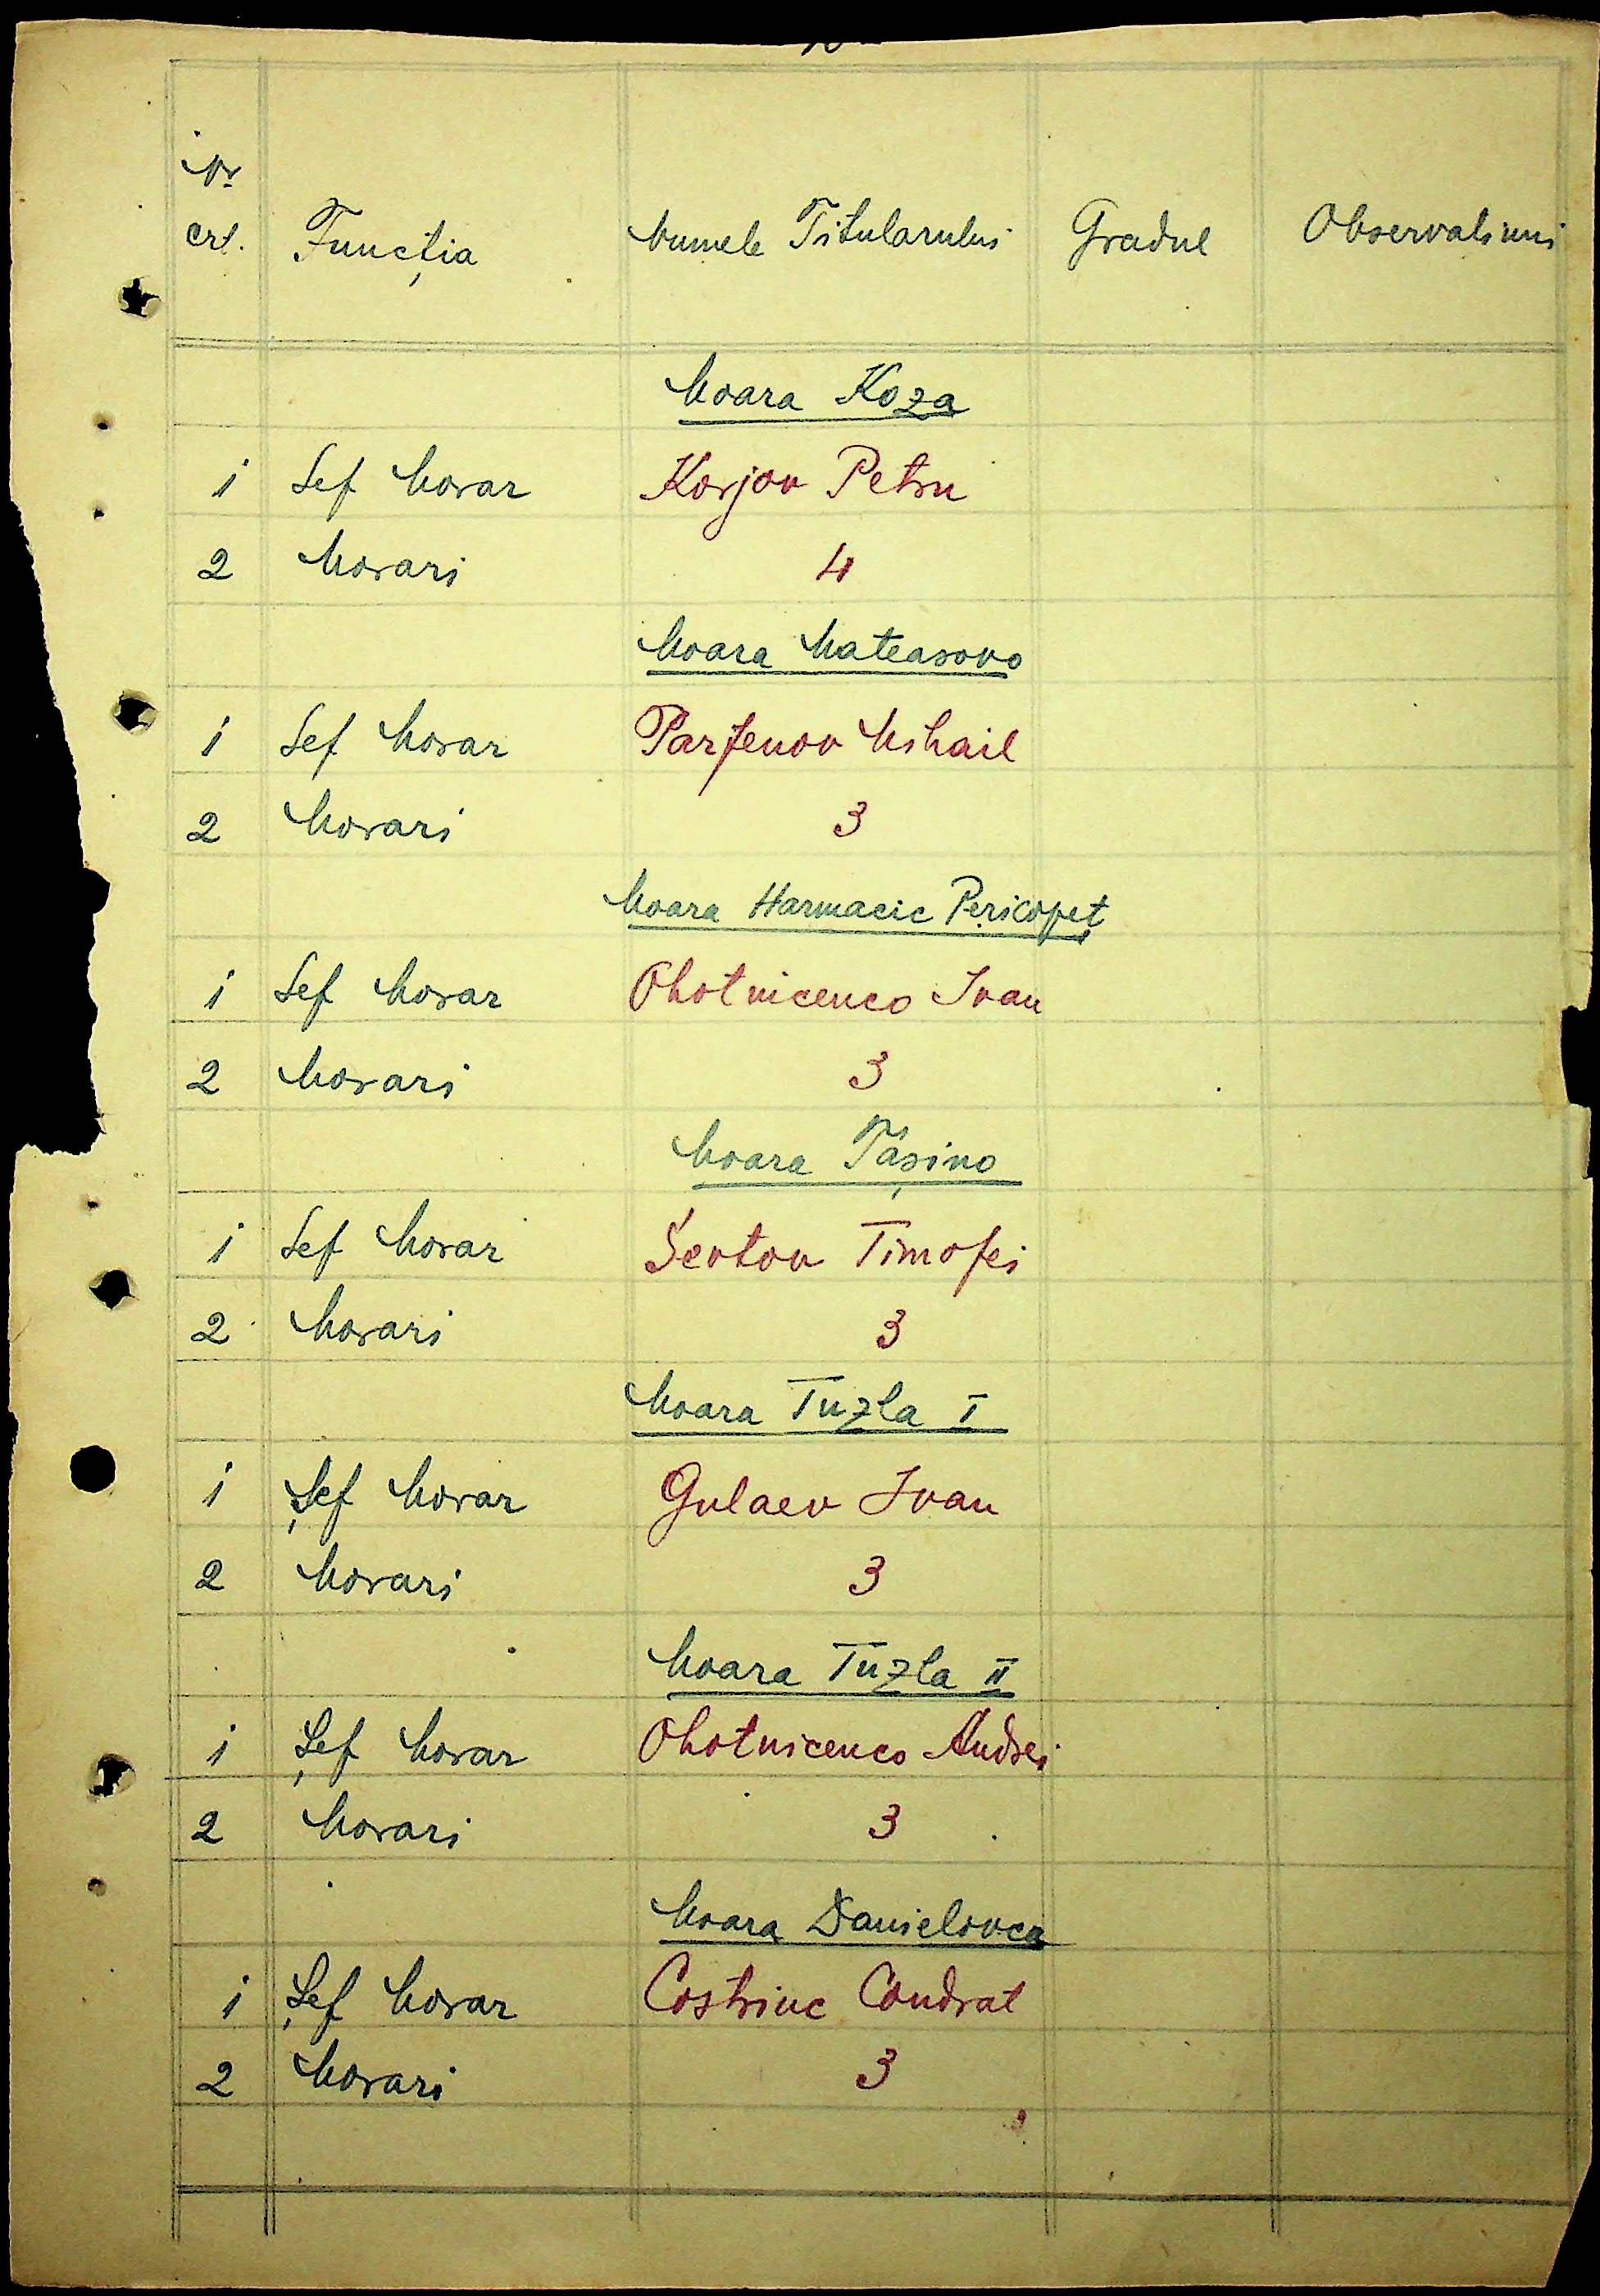 Nr.
crt. Funcția Numele Titularului Gradul Observațiuni
Moara Koza
1 Sef Morar Korjov Petru
2 Morari 4
Moara Mateasovo
1 Sef Morar Parfenov Mihail
2 Morari 3
Moara Harmacic Pericopeț
1 Sef Morar Ohotnicenco Ivan
2 Morari 3
Moara Tașino
1 Sef Morar Sevtov Timofei
2 Morari 3
Moara Tuzla I
1 Șef Morar Gulaev Ivan
2 Morari 3
Moara Tuzla II
1 Șef Morar Ohotnicenco Andrei
2 Morari 3
Moara Danielovca
1 Șef Morar Costriuc Condrat
2 Morari 3